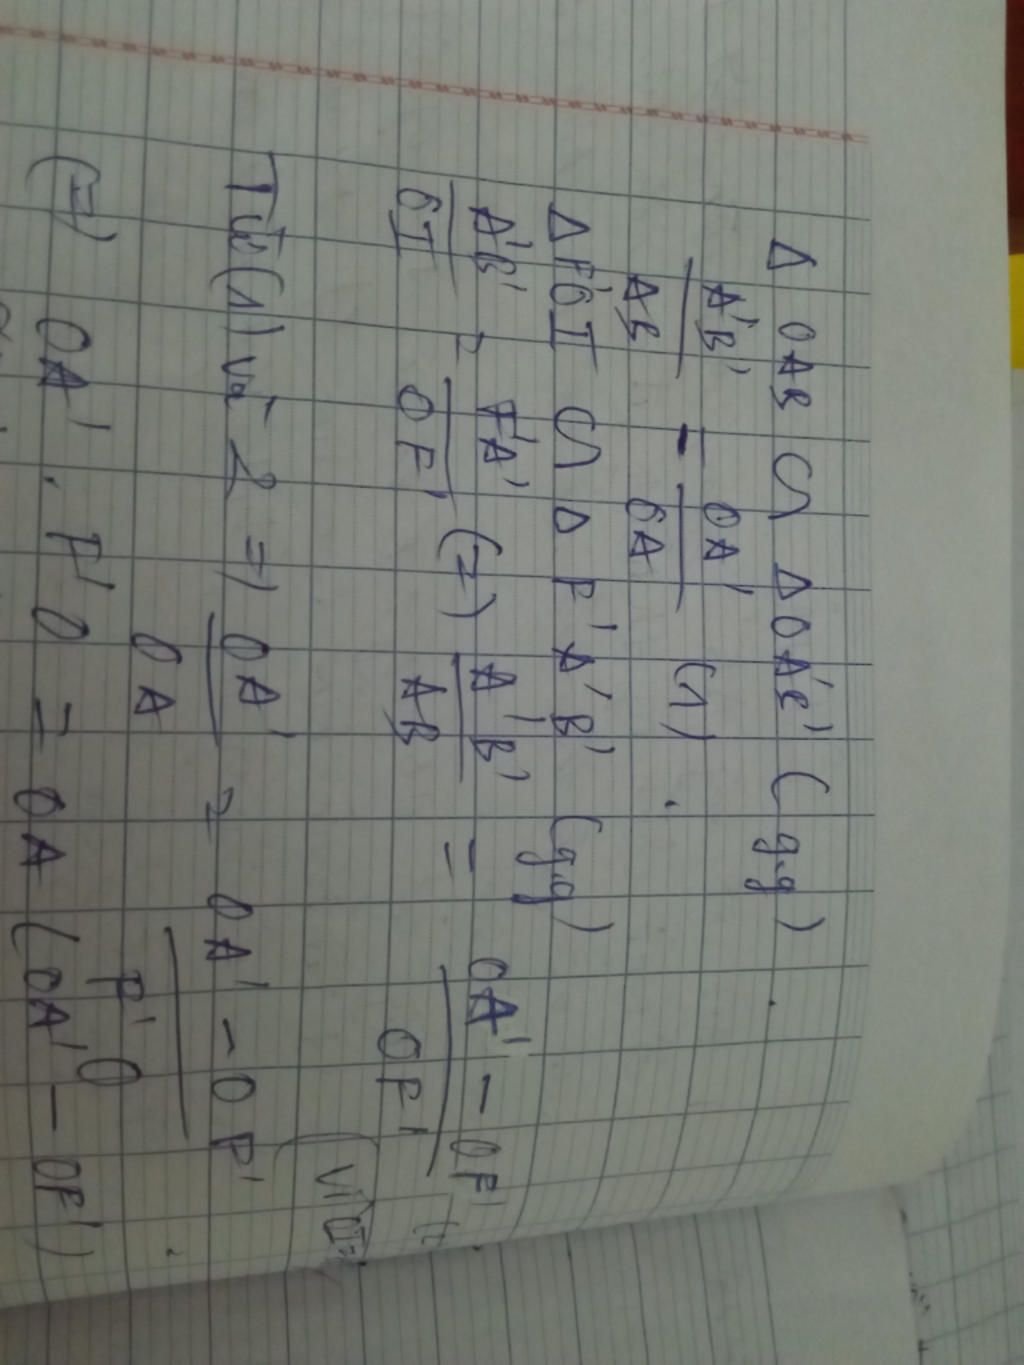 Δ OAB ∽ Δ OA'B' (g.g)
A'B'/AB = OA'/OA (1)
Δ F'OI ∽ Δ F'A'B' (g.g)
A'B'/OI = F'A'/OF' (2) A'B'/AB = OA' - OF'/OF'
Vì OI=
Từ (1) và 2 => OA'/OA = OA' - OF'/F'O
(=) OA' . F'O = OA (OA' - OF')